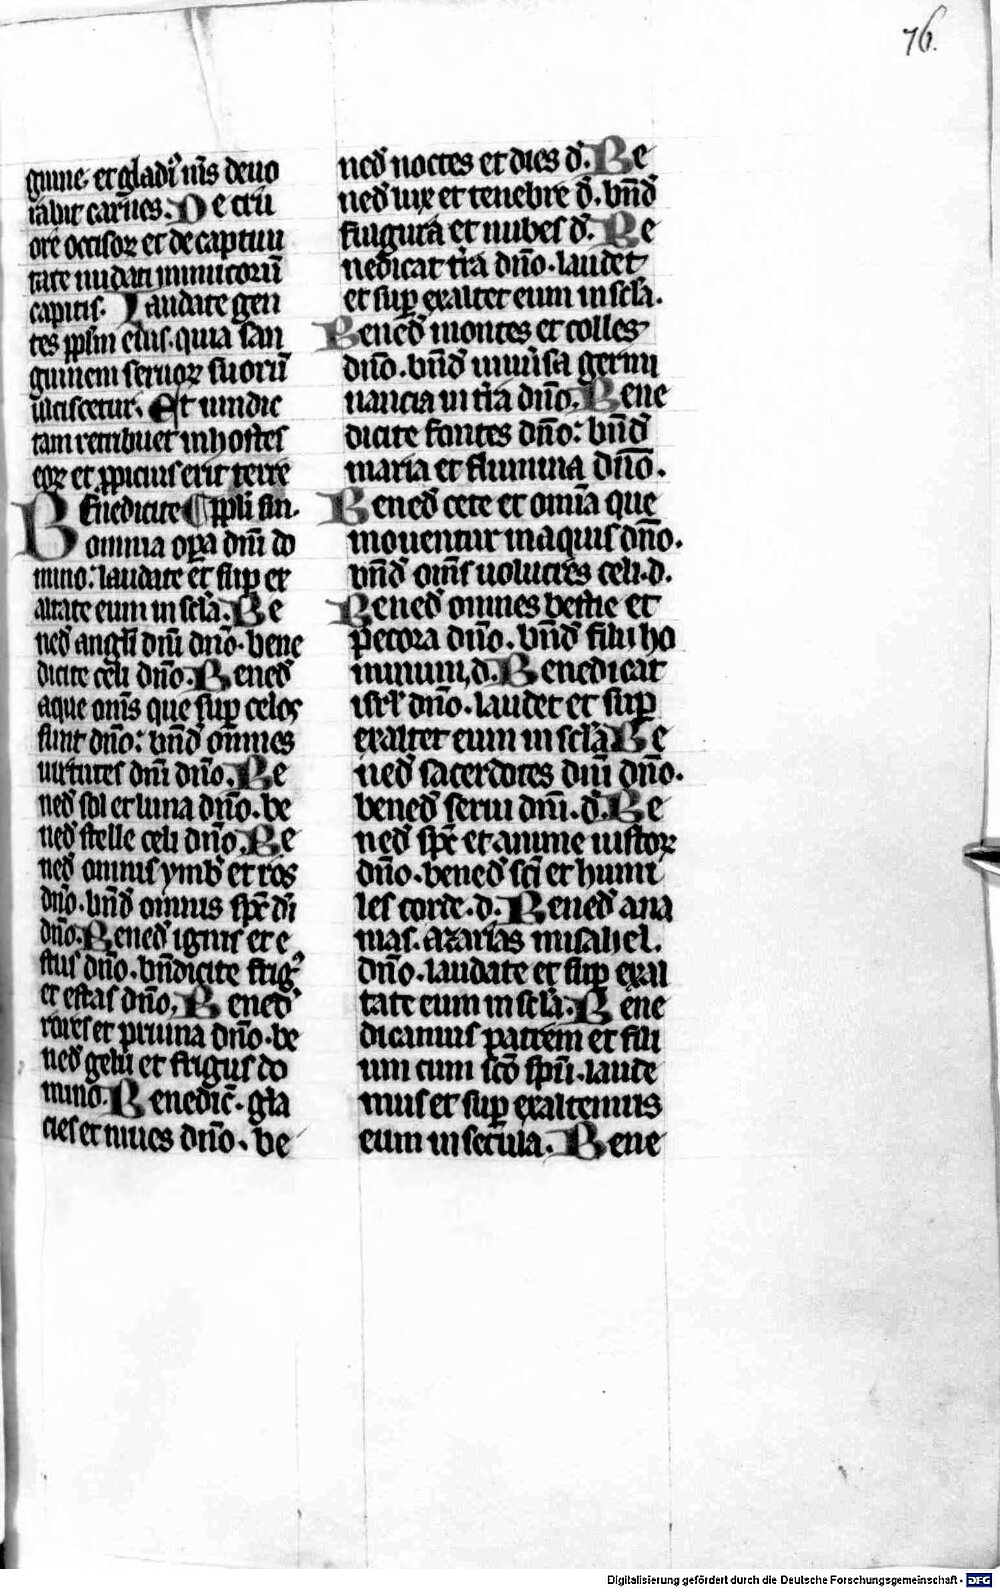 76.
guine. et gladi᷒ m̄s deuo
rabit carnes. De cru
ore occisoꝝ et de captiui
tate nudati inimicorū
capitis. Laudate gen
tes pplm̄ eius. quia san
guinem seruoꝝ suorū
ulciscetur. Et uindic
tam retribuet in hostes
eoꝝ et ꝓpicius erit terre
Benedicite ¶ ppli sui.
omnia oꝑa dnī do
mino. laudate et suꝑ ex
altate eum in scl̄a. Be
ned̄ angli dnī dnō. bene
dicite celi dnō. Bened̄
aque om̄s que suꝑ celos
sunt dnō: bn̄d̄ omnes
uirtutes dnī dnō. Be
ned̄ sol et luna dnō. be
ned̄ stelle celi dnō. Be
ned̄ omnis ymb̄ et ros
dnō. bn̄d̄ omnis sp̄c di
dnō. Bened̄ ignis et e
stus dnō. bn̄dicite frig᷒
et estas dnō. Bened̄
rores et pruina dnō. be
ned̄ gelu et frigus do
mino. Benedic̄. gla
cies et niues dnō. be
ned̄ noctes et dies d̄. Be
ned̄ lux et tenebre d̄. bn̄d̄
fulgura et nubes d̄. Be
nedicat tr̄a dnō. laudet
et suꝑ exaltet eum in scl̄a.
Bened̄ montes et colles
dnō. bn̄d̄ uniūsa germi
nancia in tr̄a dnō. Bene
dicite fontes dnō: bn̄d̄
maria et flumina dnō.
Bened̄ cete et omīa que
mouentur in aquis dnō.
bn̄d̄ om̄s uolucres celi. d.
Bened̄ omnes bestie et
pecora dnō. bn̄d̄ filii ho
minum, d. Benedicat
isrl̄ dnō. laudet et suꝑ
exaltet eum in scl̄a Be
ned̄ sacerdotes dnī dnō.
bened̄ serui dnī. d̄. Be
ned̄ sp̄c et anime iustoꝝ
dnō. bened̄ sc̄i et humi
les corde. d. Bened̄ ana
nias. azarias misahel.
dnō. laudate et suꝑ exal
tate eum in scl̄a. Bene
dicamus patrem et fili
um cum sc̄o sp̄u. laude
mus et suꝑ exaltemus
eum in secula. Bene
Digitalisierung gefördert durch die Deutsche Forschungsgemeinschaft - DFG